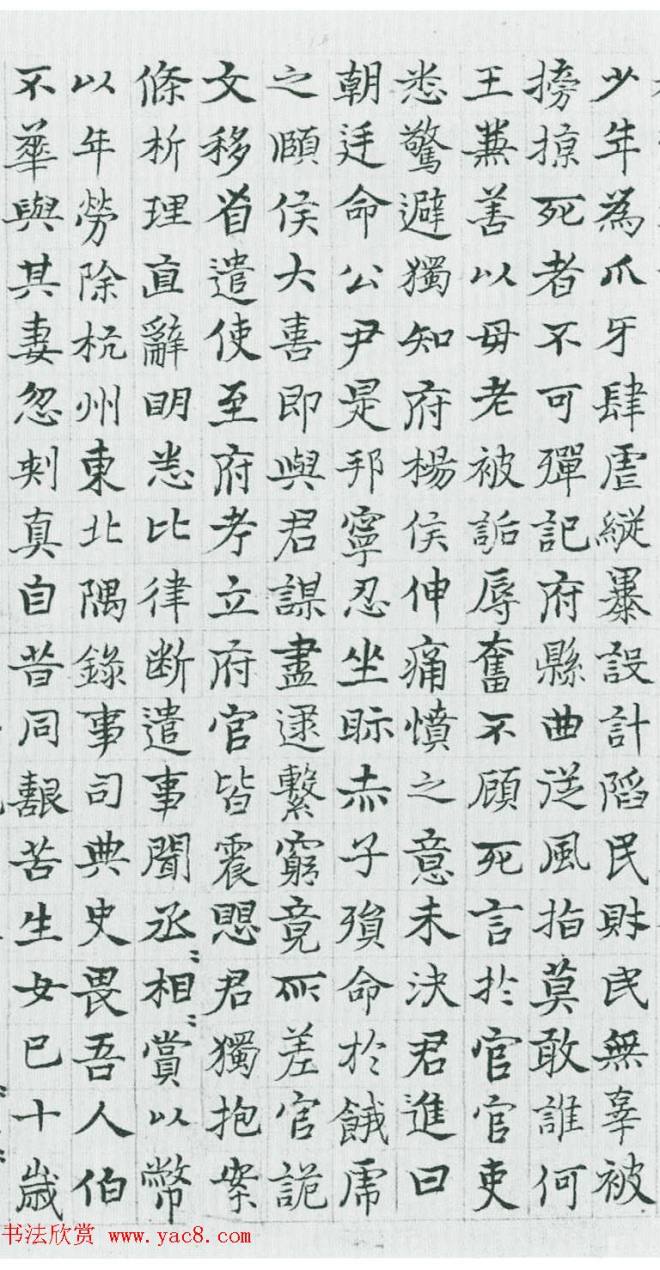 少年為爪牙肆虐縱暴設計陷民財民無辜被
搒掠死者不可殫記府縣曲从風指莫敢誰何
王兼善以母老被詬辱奮不顧死言於官官吏
悉驚避獨知府楊侯伸痛憤之意未決君進曰
朝廷命公尹是邦寧忍坐眎赤子殞命於餓虎
之頤侯大喜即與君謀盡逮繫窮竟所差官詭
文移省遣使至府考立府官皆震愳君獨抱案
條析理直辭明悉比律断遣事聞丞相賞以幣
以年勞除杭州東北隅錄事司典史畏吾人伯
不華與其妻忽剌真自昔同艱苦生女已十歲
书法欣赏 www.yac8.com